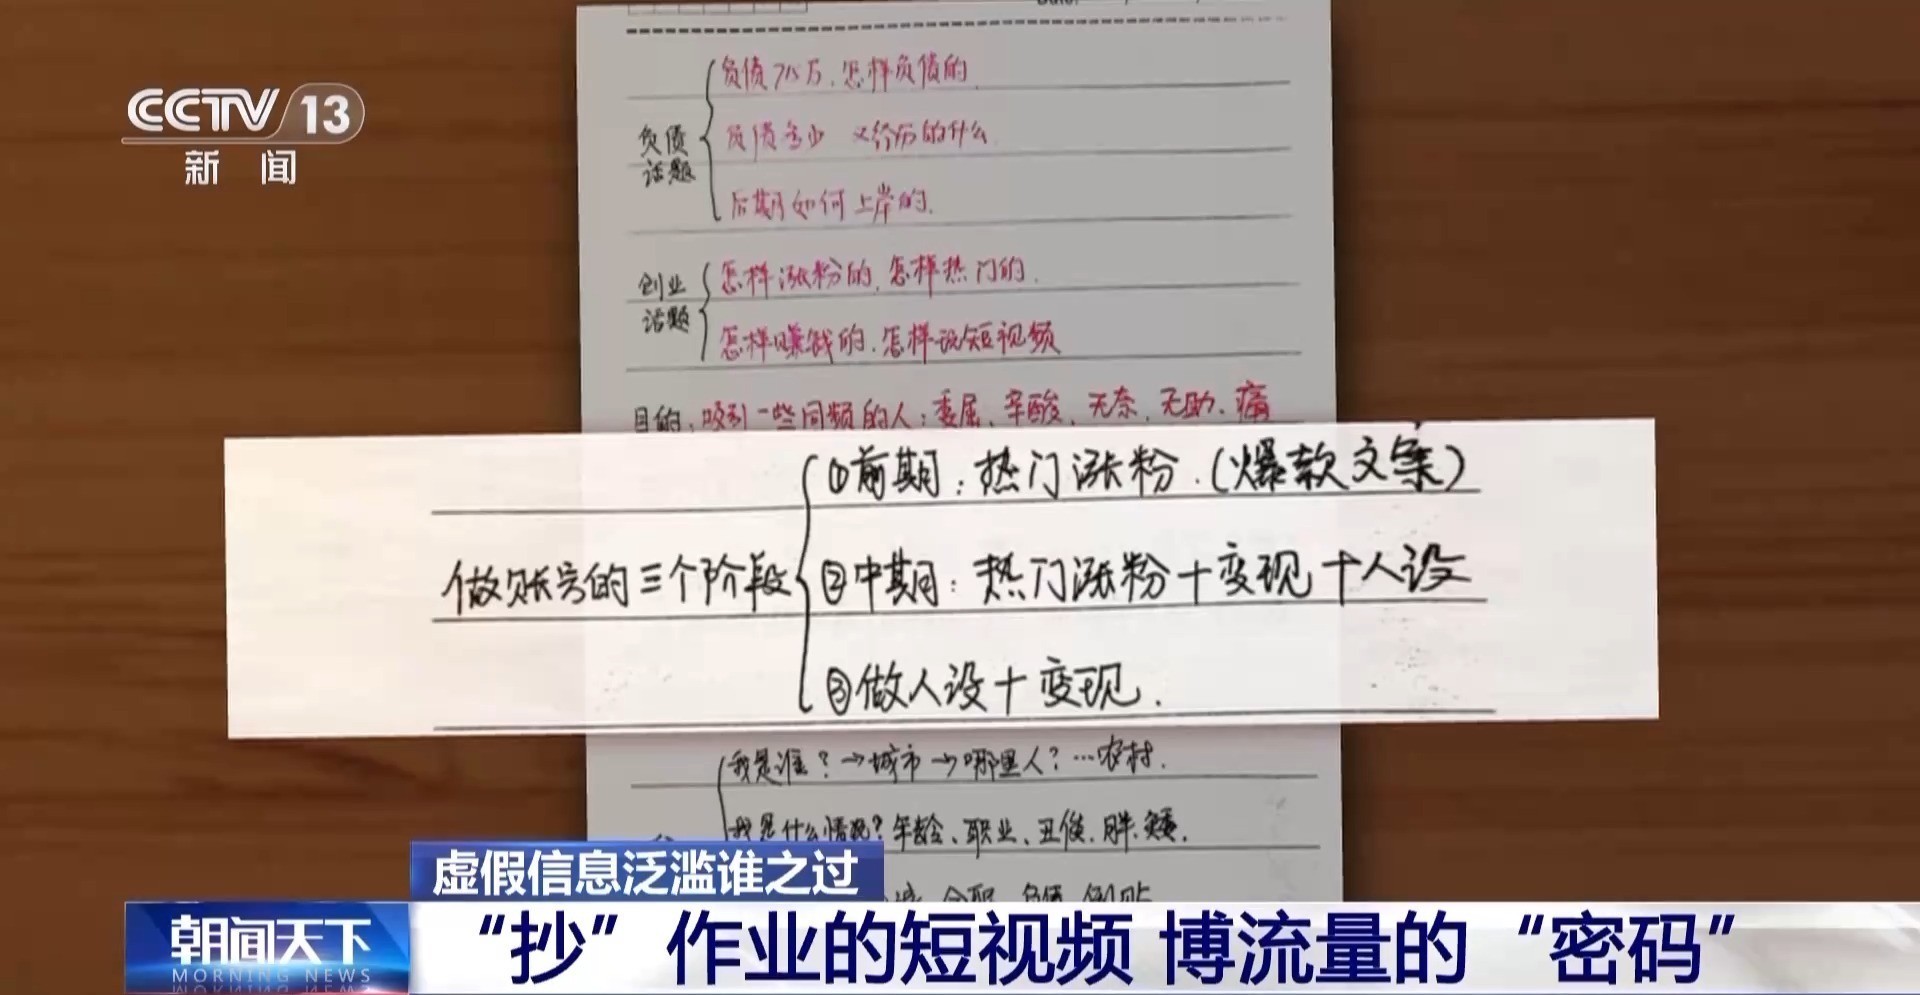 CCTV 13
新闻
负债话题
负债75万.怎样负债的.
负债多少 又经历的什么.
后期如何上岸的.
创业话题
怎样涨粉的.怎样热门的.
怎样赚钱的.怎样设短视频
目的:吸引一些同频的人:委屈、辛酸、无奈、无助.痛
做账号的三个阶段
①前期:热门涨粉.(爆款文案)
②中期:热门涨粉+变现+人设
③做人设+变现.
我是谁?→城市→哪里人?…农村.
我是什么情况?年龄、职业、丑俊.胖.矮.
虚假信息泛滥谁之过
朝闻天下
MORNING NEWS
“抄”作业的短视频 博流量的“密码”